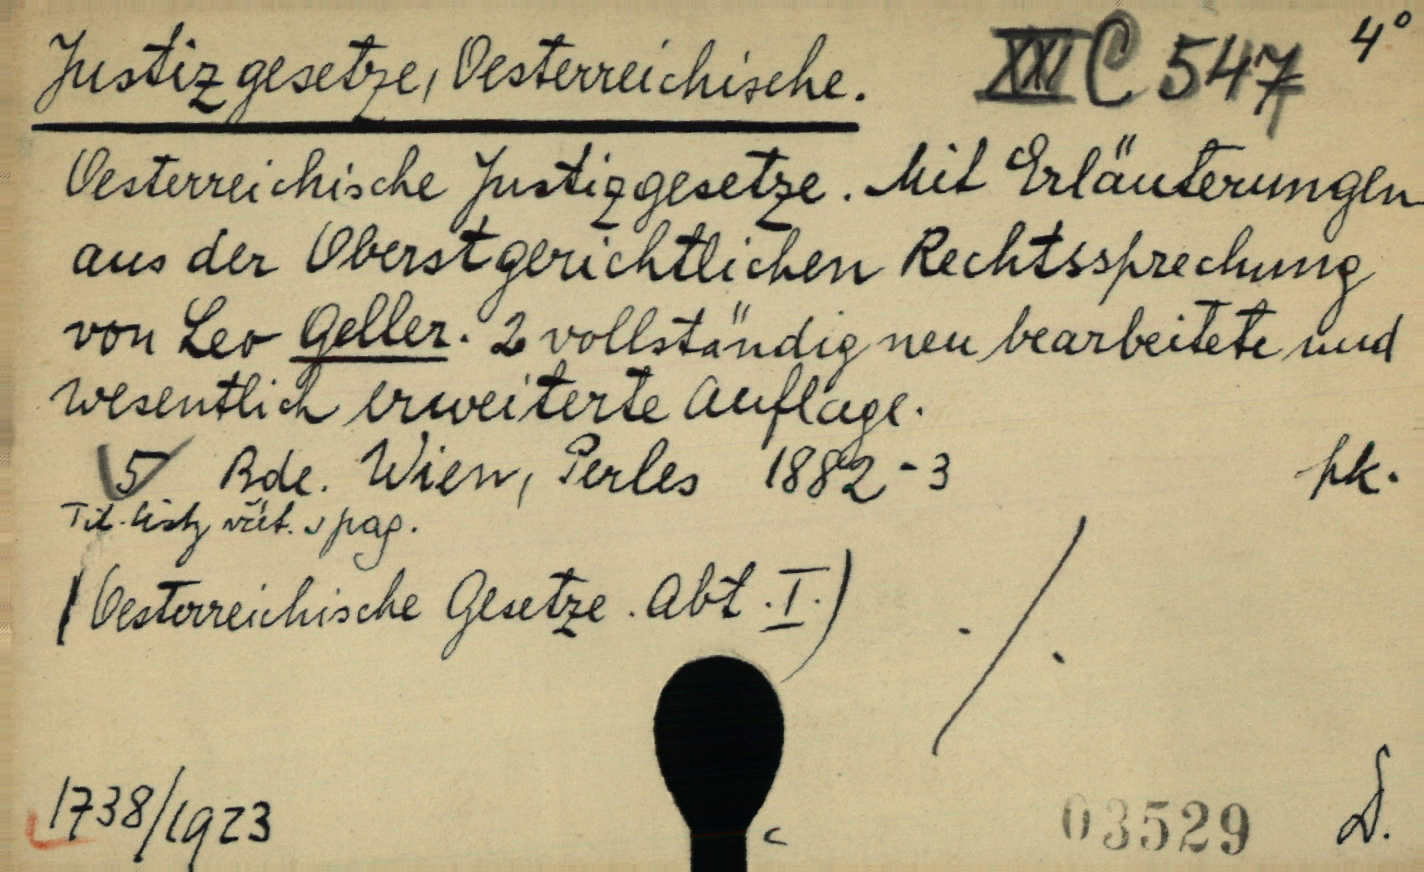 Justizgesetze, Oesterreichische. XXI C 547 4°
Oesterreichische Justizgesetze. Mit Erläuterungen
aus der Oberstgerichtlichen Rechtssprechung
von Leo Geller. 2 vollständig neu bearbeitete und
wesentlich erweiterte Auflage.
5 Bde. Wien, Perles 1882-3 pk.
Tit. pag.
(Oesterreichische Gesetze. Abt. I.)
./.
1738/1923 c 03529 D.